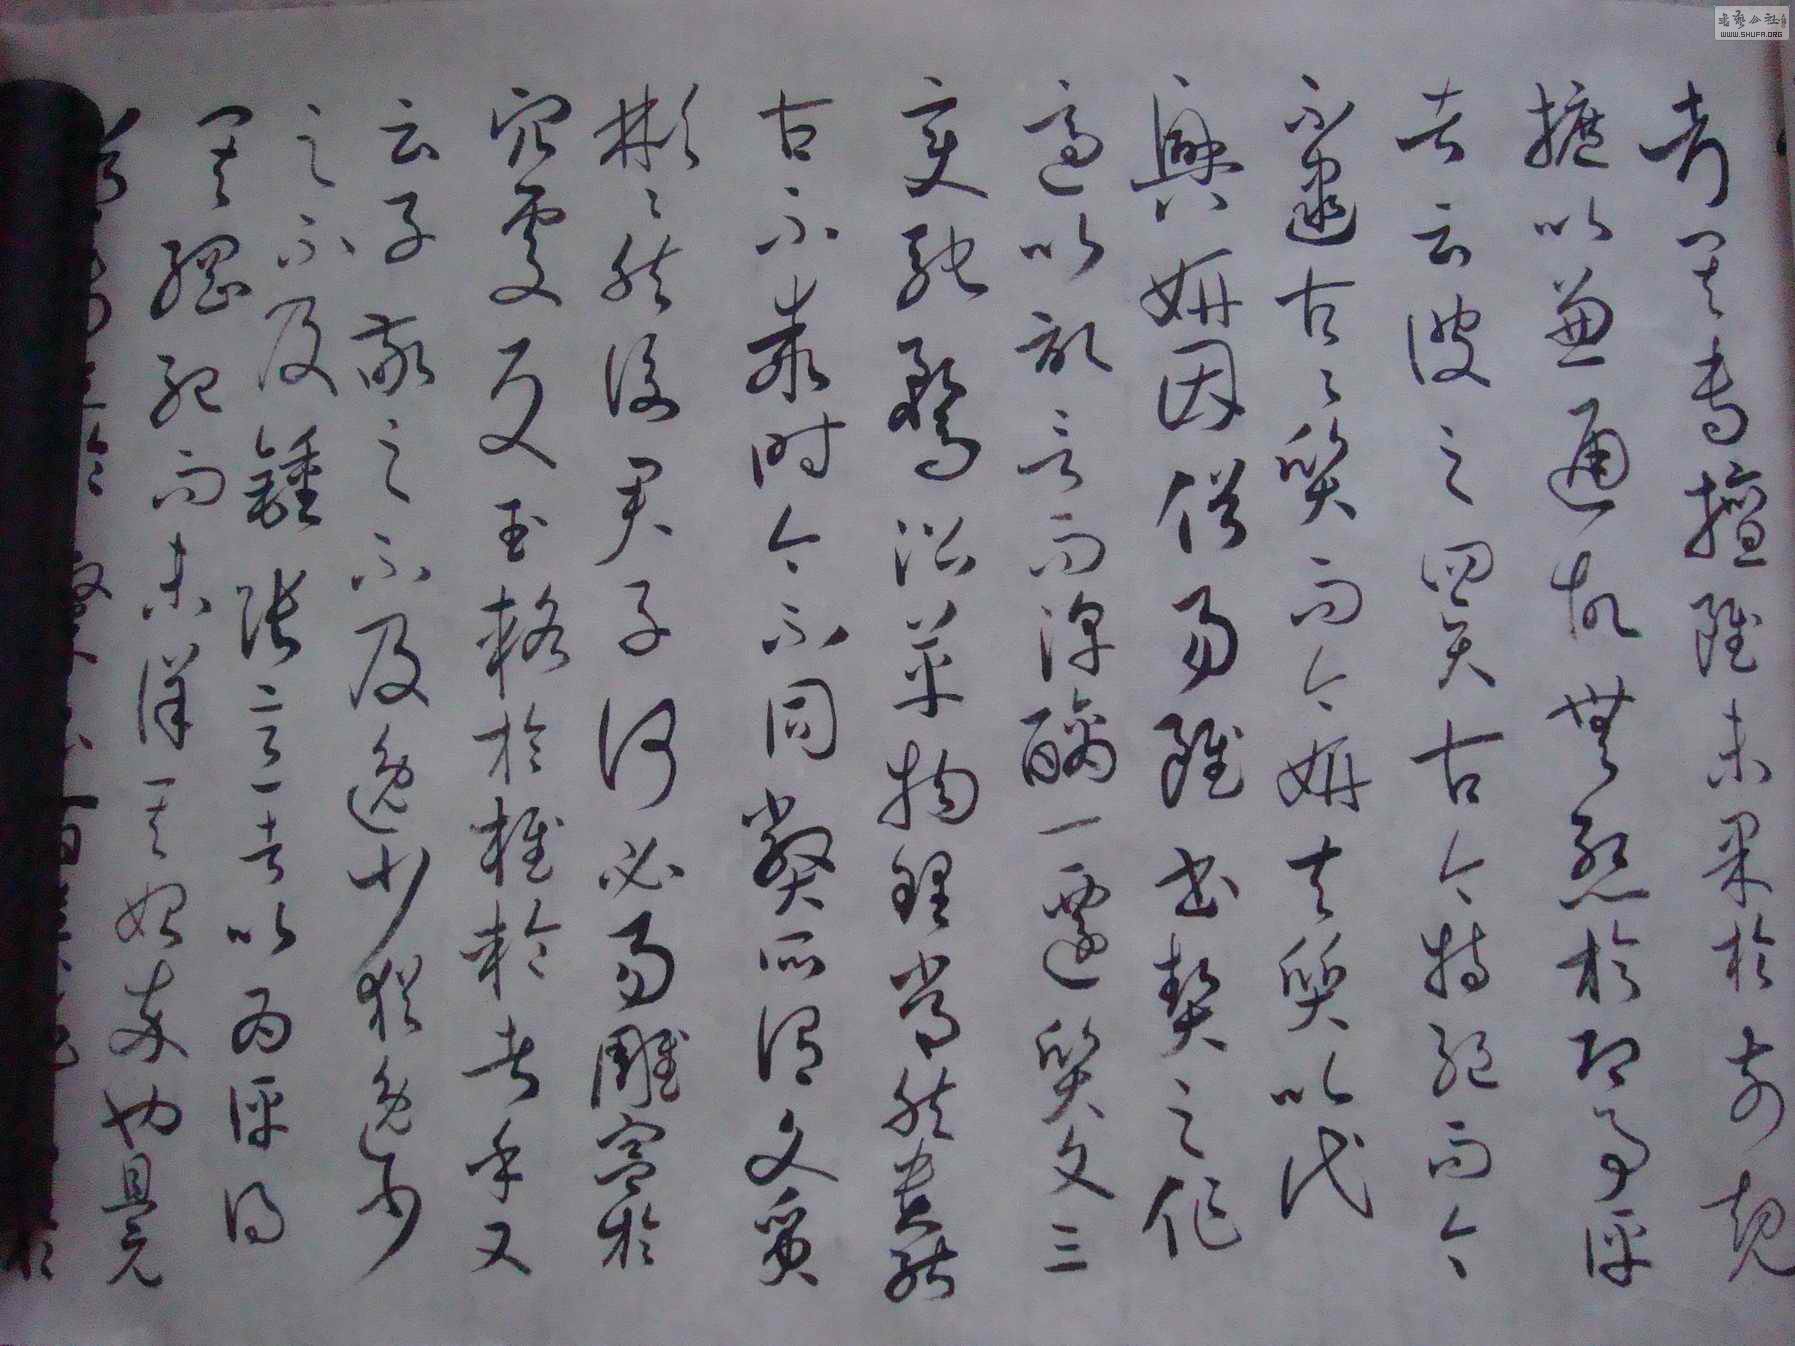 考其專擅雖未果於前規
摭以兼通故無慙於即事評
者云彼之四賢古今特絕而今
不逮古〻質而今妍夫質以代
興妍因俗易雖書契之作
適以記言而淳醨一遷質文三
變馳騖沿革物理常然貴能
古不乖時今不同弊所謂文質
彬〻然後君子何必易雕宮於
穴處反玉輅於椎輪者乎又
云子敬之不及逸少猶逸少
之不及鍾張意者以為評得
其綱紀而未詳其始卒也且元
WWW.SHUFA.ORG